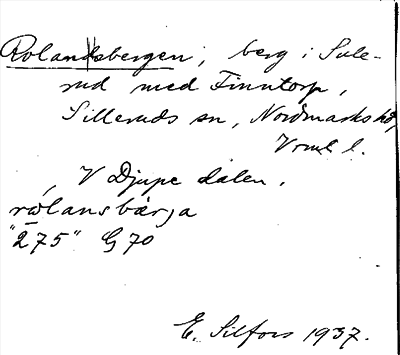 Rolandsbergen, berg i Sule-
rud med Finntorp,
Silleruds sn, Nordmarks hd,
Vrml l.
V Djupe dalen.
rωlansbærja
"275" G 70
E. Silfors 1937.